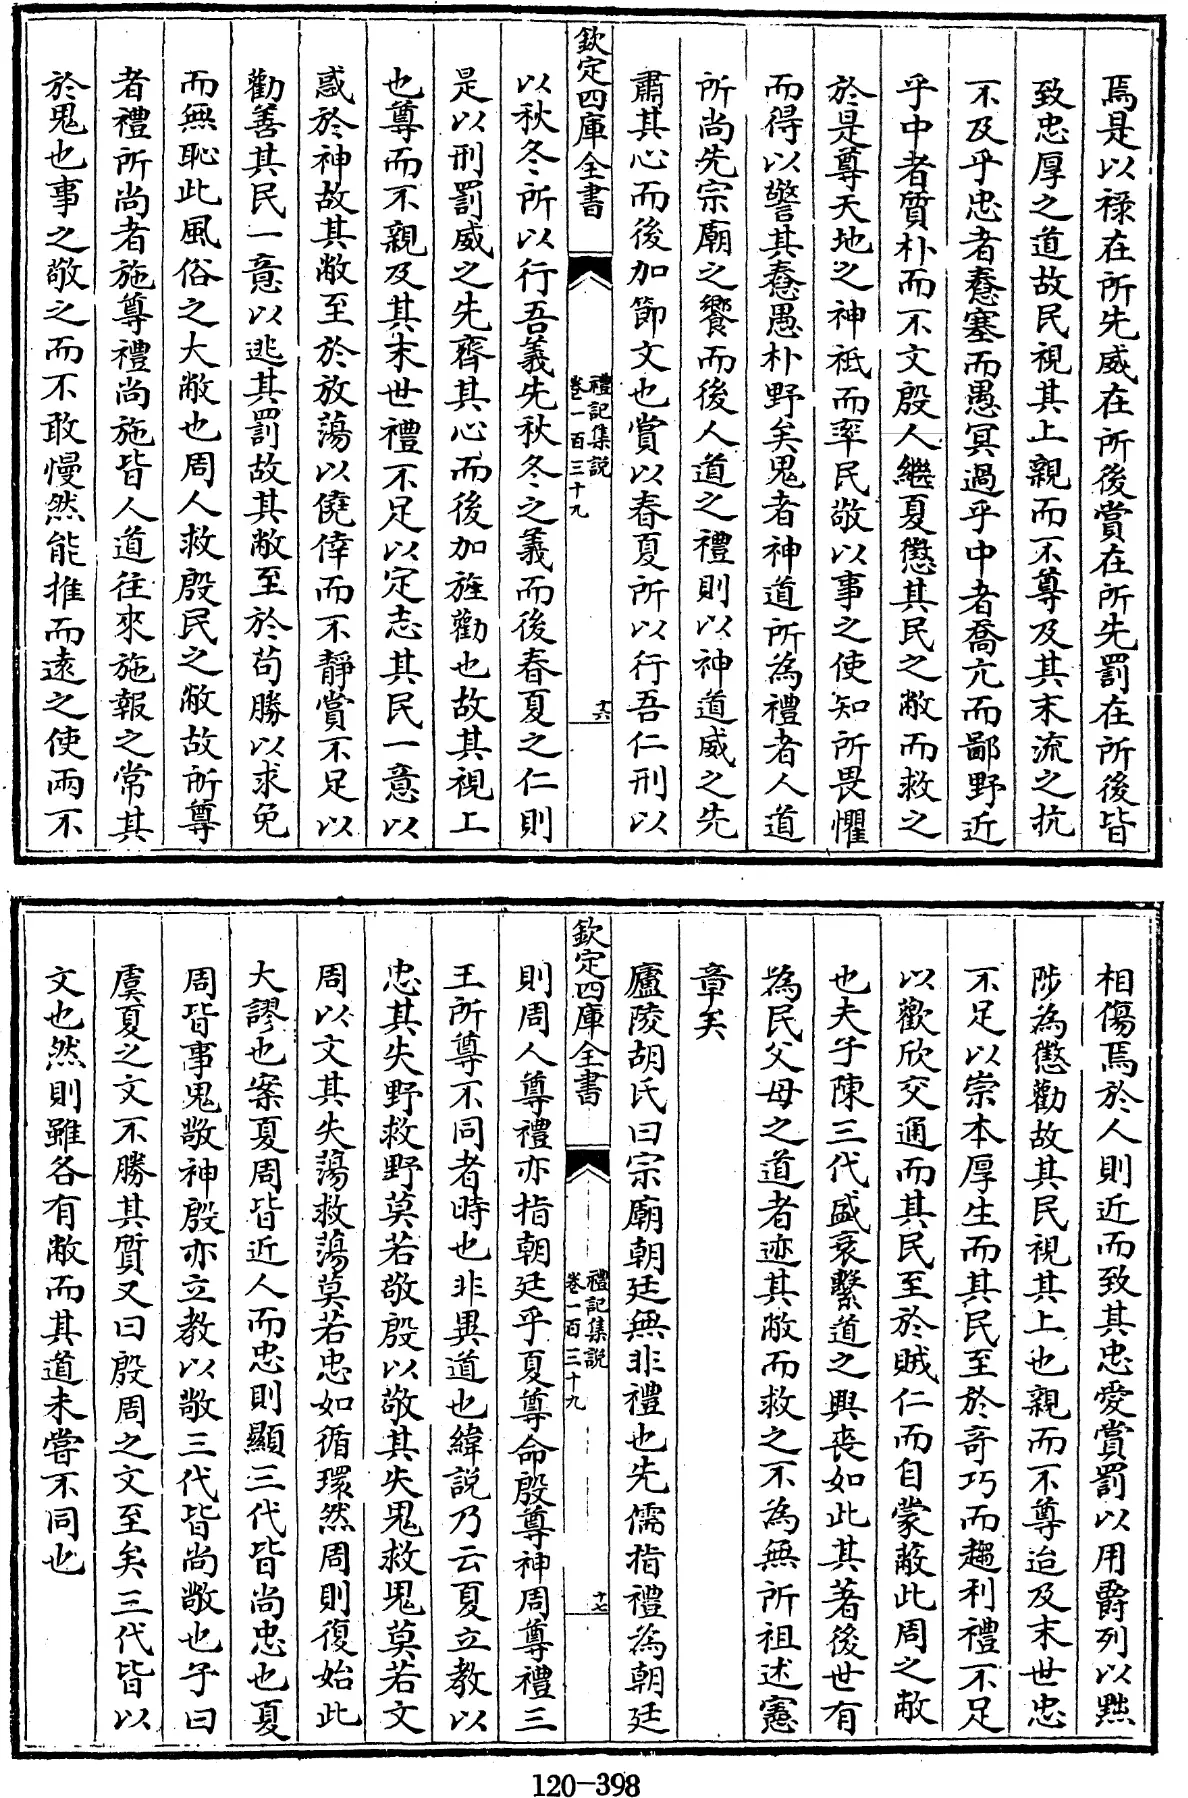 焉是以祿在所先威在所後賞在所先罰在所後皆
致忠厚之道故民視其上親而不尊及其末流之抗
不及乎忠者惷塞而愚冥過乎中者喬亢而鄙野近
乎中者質朴而不文殷人繼夏懲其民之敝而救之
於是尊天地之神祇而率民敬以事之使知所畏懼
而得以警其惷愚朴野矣鬼者神道所為禮者人道
所尚先宗廟之饗而後人道之禮則以神道威之先
肅其心而後加節文也賞以春夏所以行吾仁刑以
欽定四庫全書
禮記集説
卷一百三十九
十六
以秋冬所以行吾義先秋冬之義而後春夏之仁則
是以刑罰威之先齊其心而後加旌勸也故其視上
也尊而不親及其末世禮不足以定志其民一意以
惑於神故其敝至於放蕩以僥倖而不靜賞不足以
勸善其民一意以逃其罰故其敝至於苟勝以求免
而無恥此風俗之大敝也周人救殷民之敝故所尊
者禮所尚者施尊禮尚施皆人道往來施報之常其
於鬼也事之敬之而不敢慢然能推而遠之使兩不
相傷焉於人則近而致其忠愛賞罰以用爵列以黜
陟為懲勸故其民視其上也親而不尊迨及末世忠
不足以崇本厚生而其民至於奇巧而趨利禮不足
以歡欣交通而其民至於賊仁而自蒙蔽此周之敝
也夫子陳三代盛衰繫道之興喪如此其著後世有
為民父母之道者迹其敝而救之不為無所祖述憲
章矣
廬陵胡氏曰宗廟朝廷無非禮也先儒指禮為朝廷
欽定四庫全書
禮記集説
卷一百三十九
十七
則周人尊禮亦指朝廷乎夏尊命殷尊神周尊禮三
王所尊不同者時也非異道也緯説乃云夏立教以
忠其失野救野莫若敬殷以敬其失鬼救鬼莫若文
周以文其失蕩救蕩莫若忠如循環然周則復始此
大謬也案夏周皆近人而忠則顯三代皆尚忠也夏
周皆事鬼敬神殷亦立教以敬三代皆尚敬也子曰
虞夏之文不勝其質又曰殷周之文至矣三代皆以
文也然則雖各有敝而其道未嘗不同也
120-398